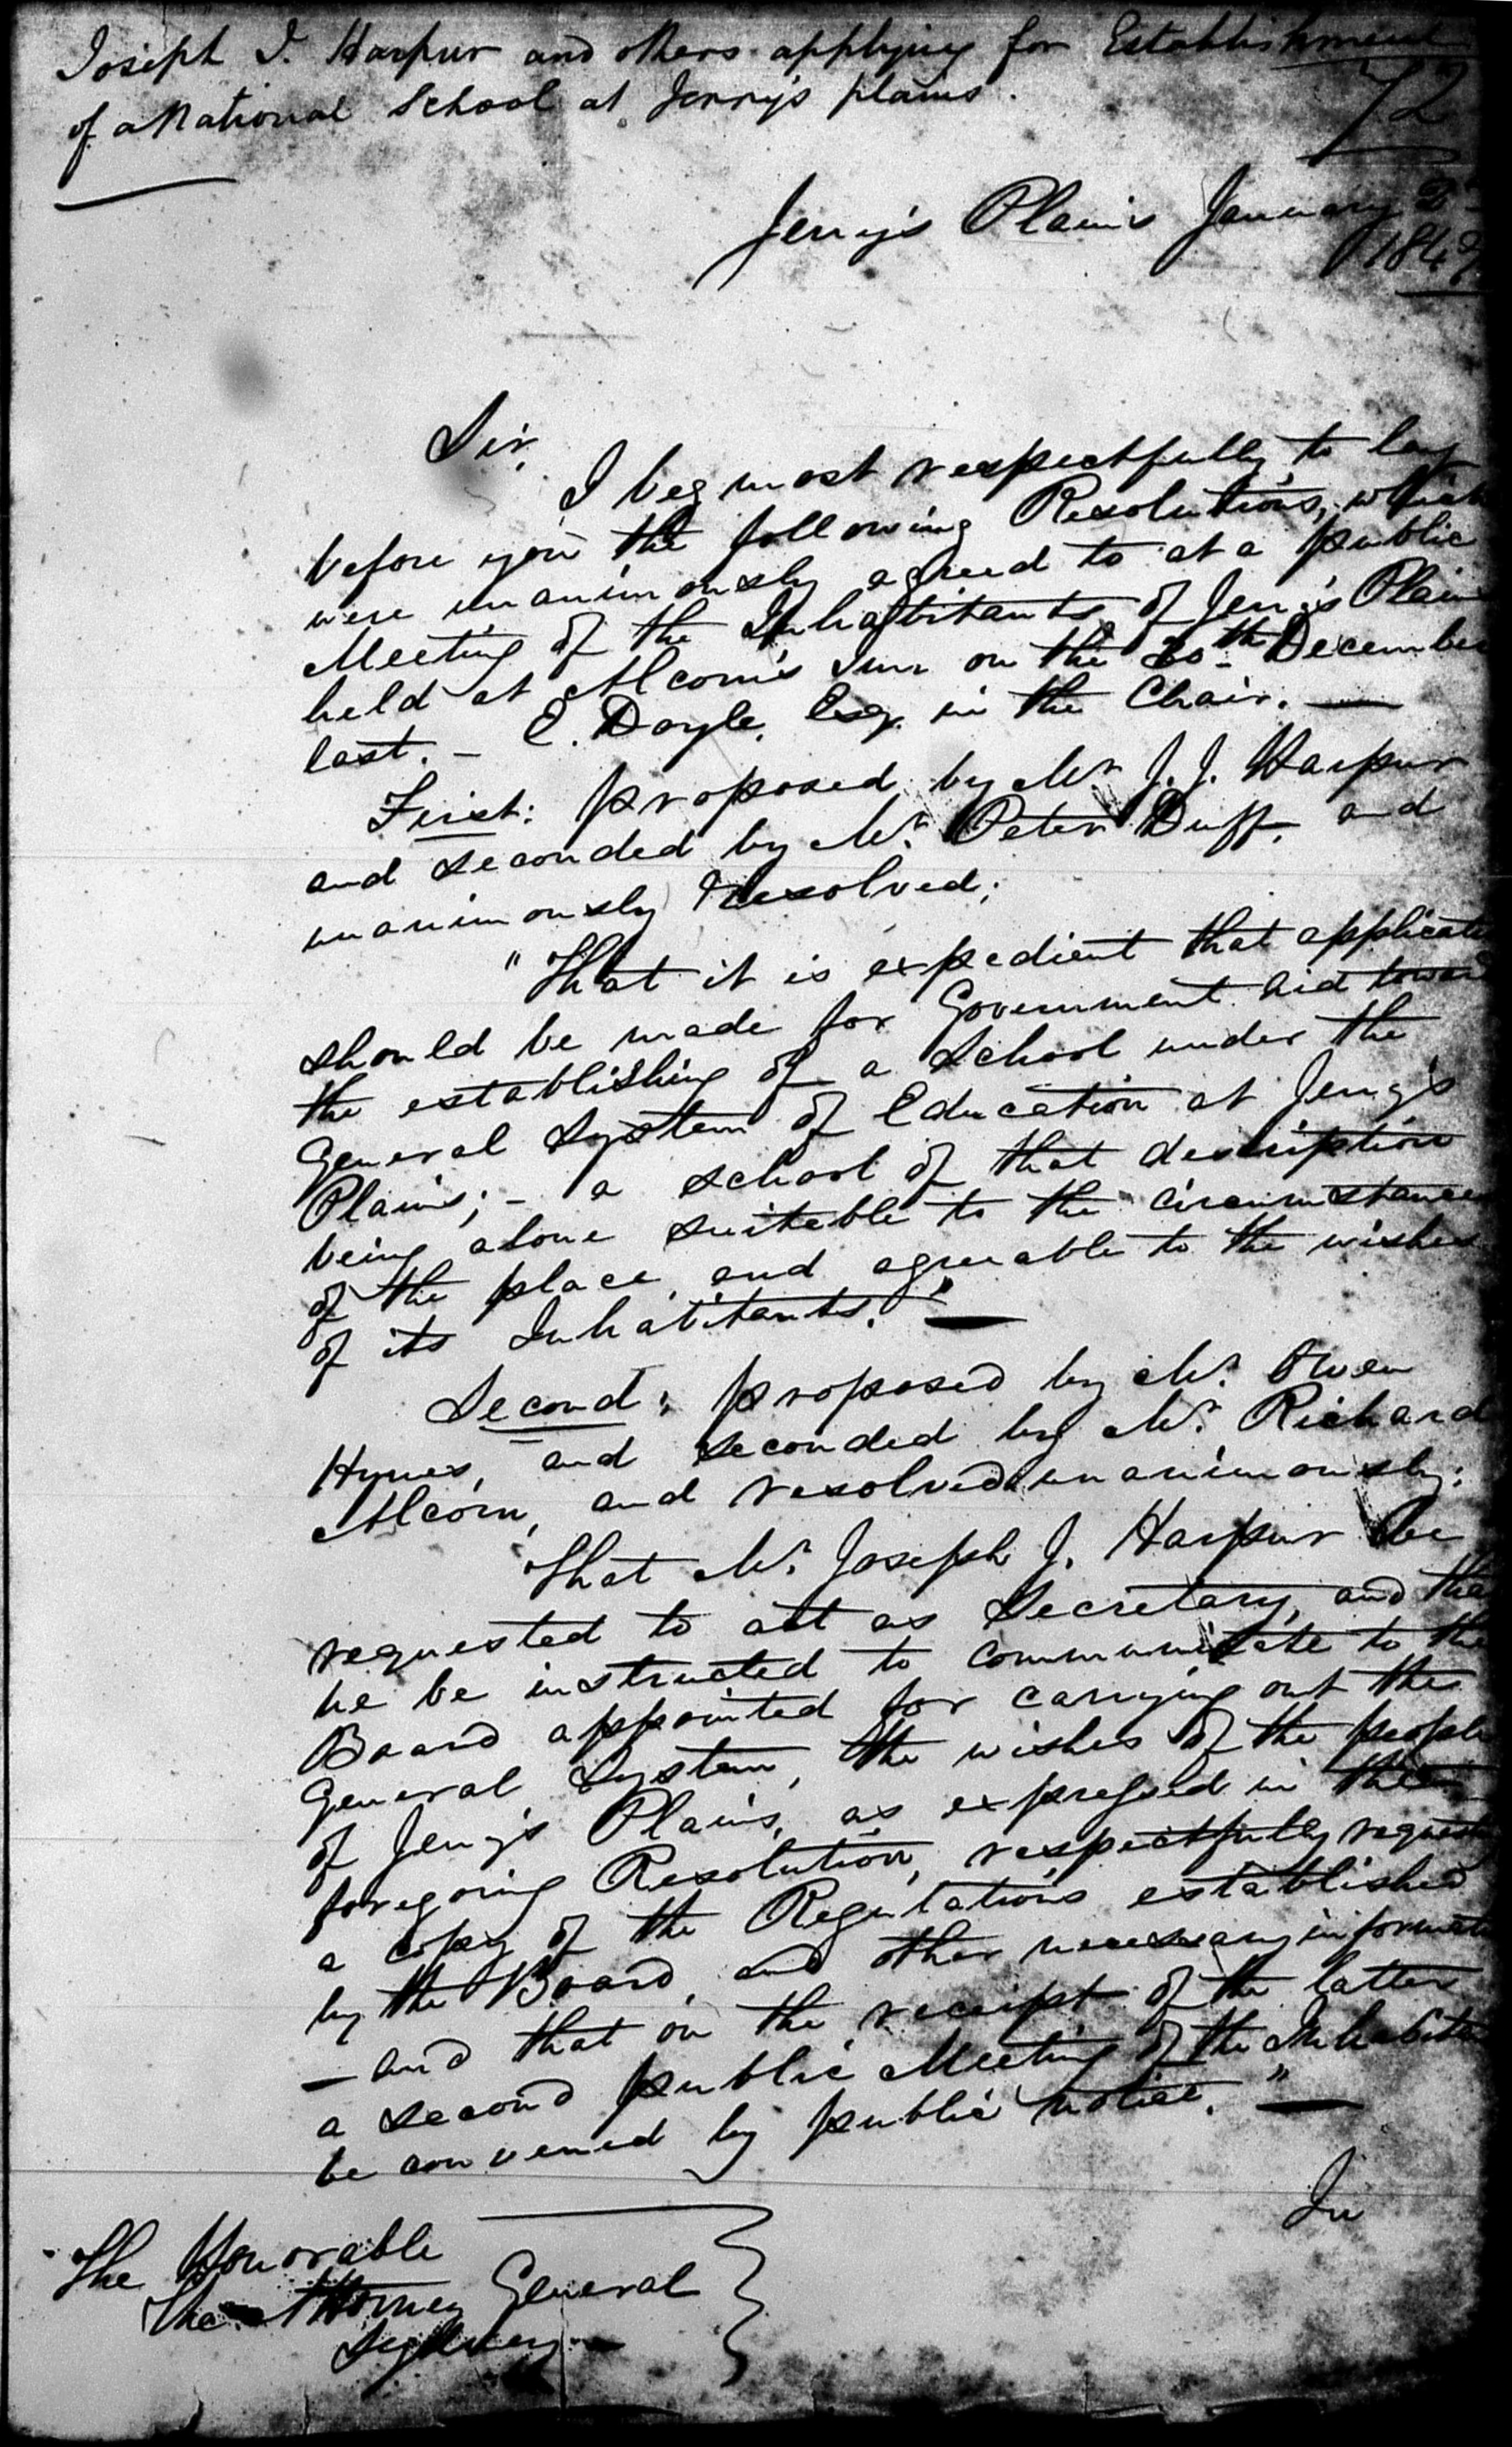 Joseph J. Harpur and others applying for Establishment
of a National School at Jerry's plains.
72
Jerry's Plains January 2nd
184
Sir,
I beg most respectfully to lay
before you the following Resolutions, which
were unanimously agreed to at a public
Meeting of the Inhabitants of Jerry's Plains
held at Alcorn's Inn on the 20th December
last. – E. Doyle, Esq. in the Chair. —
First: proposed by Mr J. J. Harpur
and seconded by Mr. Peter Duff, and
unanimously Resolved;
"That it is expedient that applicati
should be made for Government aid toward
the establishing of a School under the
General System of Education at Jerry's
Plains; – a school of that description
being alone suitable to the circumstances
of the place, and agreeable to the wishes
of its Inhabitants." —
Second: proposed by Mr. Owen
Hynes, and seconded by Mr. Richard
Alcorn, and resolved unanimously:
"That Mr. Joseph J. Harpur be
requested to act as Secretary, and tha
he be instructed to communicate to the
Board appointed for carrying out the
General System, the wishes of the people
of Jerry's Plains, as expressed in the
foregoing Resolution, respectfully request
a copy of the Regulations established
by the Board, and other necessary informati
— and that on the receipt of the latter
a second public Meeting of the Inhabitan
be convened by public notice." —
In
The Honorable
The Attorney General
Sydney